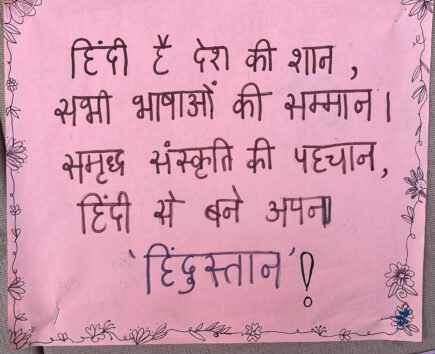 हिंदी है देश की शान,
सभी भाषाओं की सम्मान।
समृध्द संस्कृति की पहचान,
हिंदी से बने अपना
'हिंदुस्तान'!